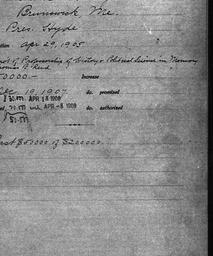 Brunswick, Me.
Pres. Hyde
Apr 29, 1905
of Professorship of History & Political Science in Memory
Reed
0000.- Increase
19, 1907 do. promised
APR 18 1908 APR -8 1908 do. authorized
$50000 of $200000.